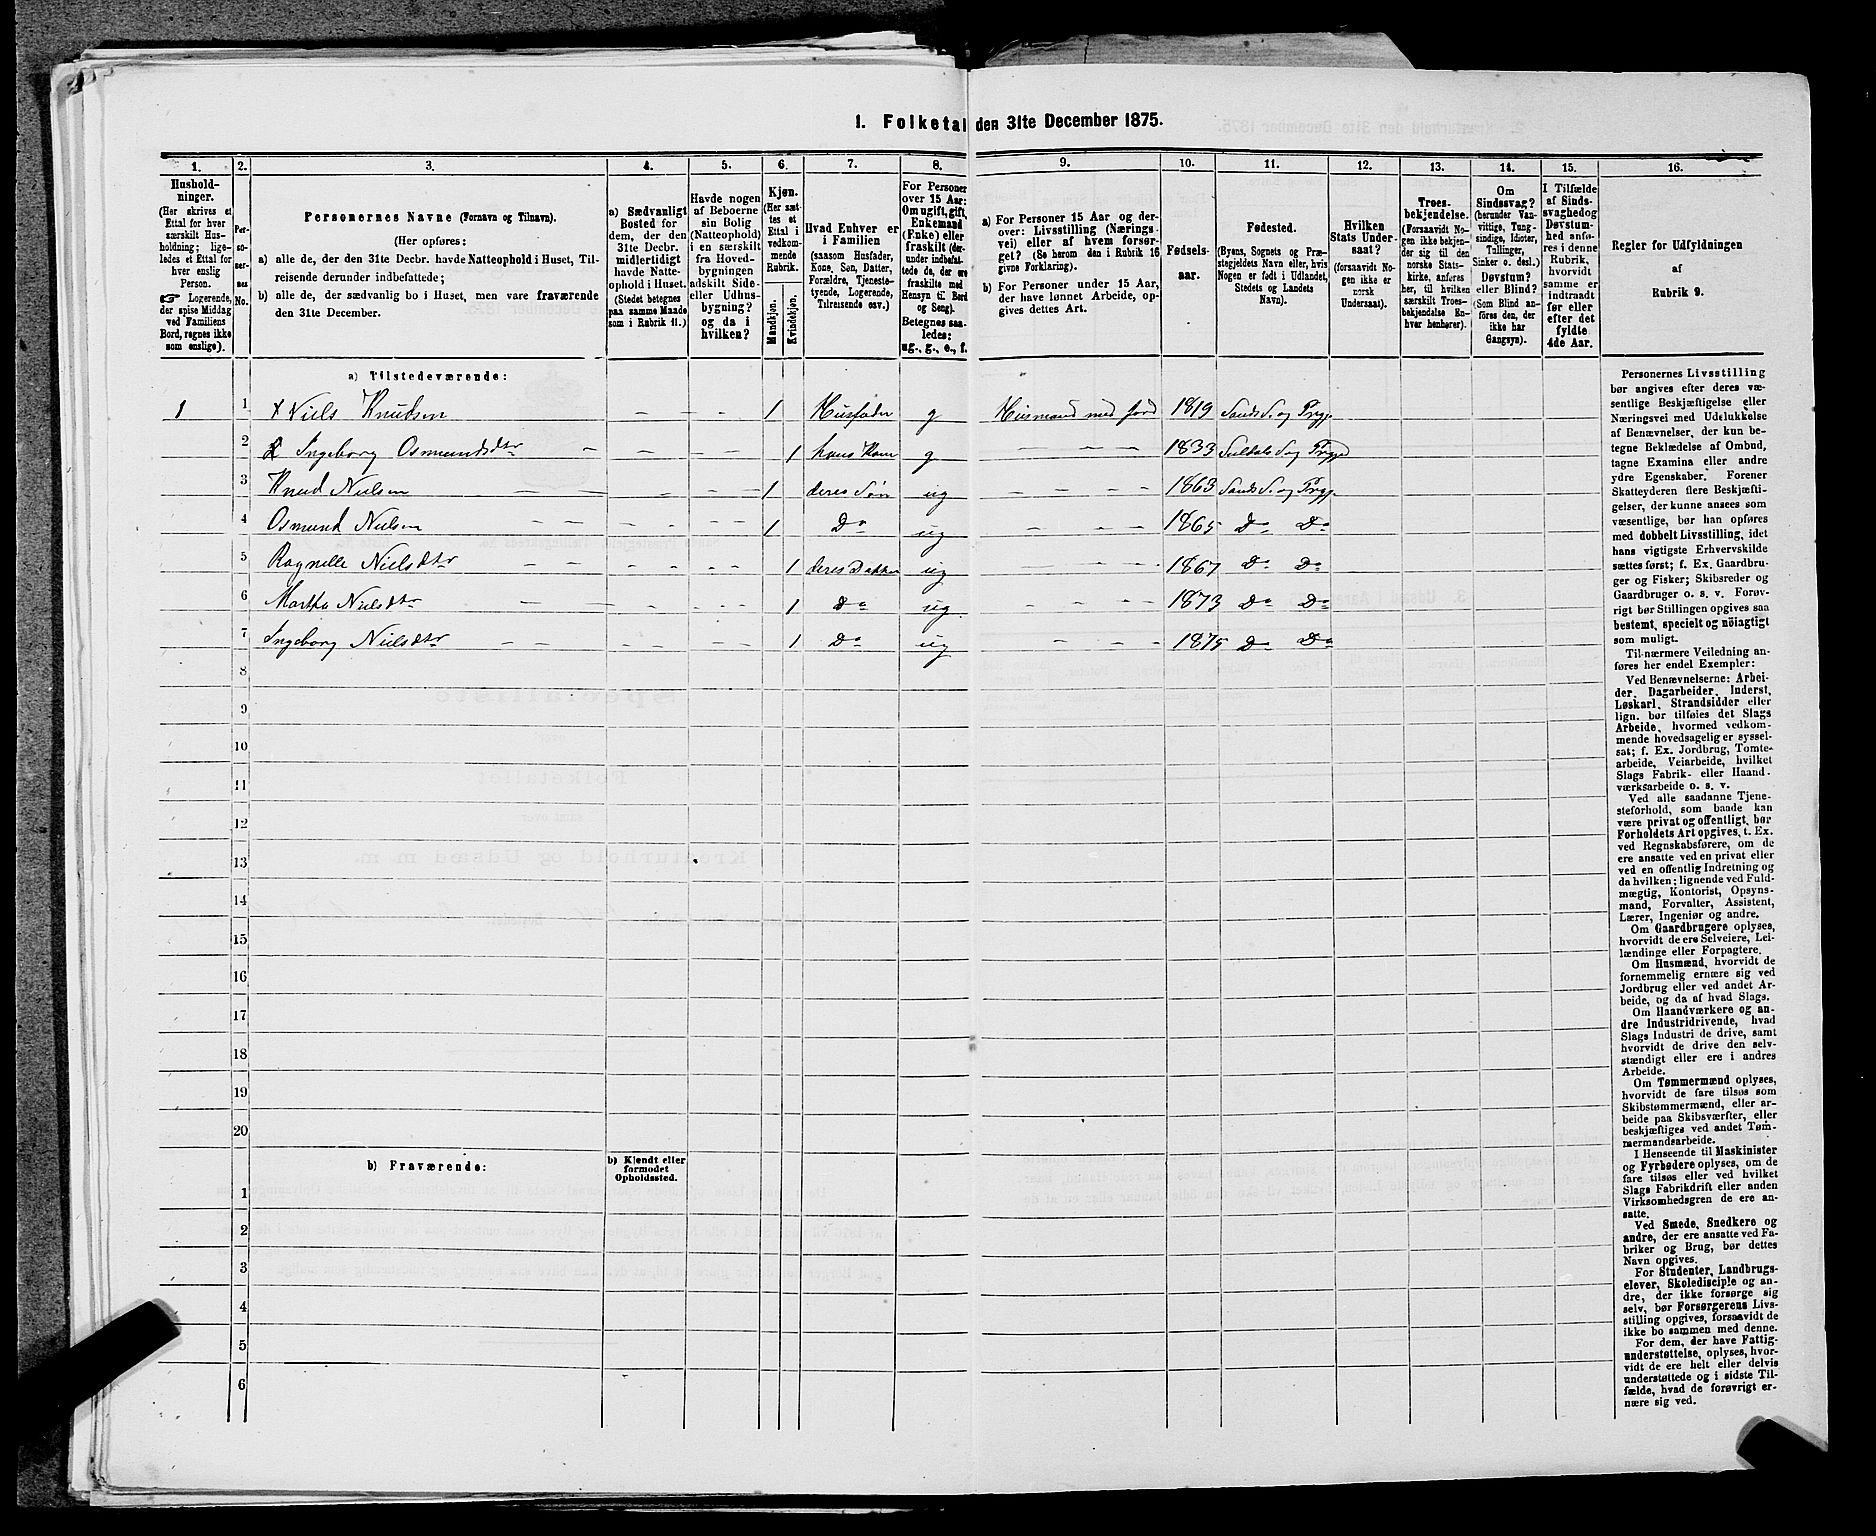 1. Folketal den 31te December 1875.
1. 2. 3. 4. 5. 6. 7. 8. 9. 10. 11. 12. 13. 14. 15. 16.
Husholdninger.
(Her skrives et
Ettal for hver
særskilt Husholdning;
ligeledes et Ettal for
hver enslig
Person.
☞ Logerende,
der spise Middag
ved Familiens
Bord, regnes ikke
som enslige).
Personernes No.
Personernes Navne (Fornavn og Tilnavn).
(Her opføres:
a) alle de, der den 31te Decbr. havde Natteophold i Huset, Tilreisende derunder indbefattede;
b) alle de, der sædvanlig bo i Huset, men vare fraværende
den 31te December.
a) Sædvanligt
Bosted for
dem, der den
31te Decbr.
midlertidigt
havde Natteophold i Huset.
(Stedet betegnes
paa samme Maade
som i Rubrik 11.)
Havde nogen
af Beboerne
sin Bolig
(Natteophold)
i en særskilt
fra Hovedbygningen
adskilt Side- eller Udhusbygning?
og da i
hvilken?
Kjøn.
(Her sættes et
Ettal i
vedkommende
Rubrik.
Mandkjøn.
Kvindekjøn.
Hvad Enhver er
i Familien
(saasom Husfader,
Kone, Søn, Datter,
Forældre, Tjenestetyende, Logerende,
Tilreisende osv.)
For Personer
over 15 Aar:
Om ugift, gift,
Enkemand
(Enke) eller
fraskilt (derunder indbefattede de, der ere
fraskilte med
Hensyn til Bord
og Seng).
Betegnes saaledes:
ug., g., e., f.
a) For Personer 15 Aar og derover: Livsstilling (Næringsvei) eller af hvem forsørget? (Se herom den i Rubrik 16
givne Forklaring).
b) For Personer under 15 Aar,
der have lønnet Arbeide, opgives dettes Art.
Fødselsaar.
Fødested.
(Byens, Sognets og Præstegjeldets Navn eller, hvis
Nogen er født i Udlandet,
Stedets og Landets
Navn).
Hvilken
Stats Undersaat?
(forsaavidt Nogen ikke er
norsk
Undersaat).
Troesbekjendelse.
(Forsaavidt Nogen ikke bekjender sig til den
norske Statskirke, anføres
her, til hvilken
særskilt Troesbekjendelse Enhver henhører).
Om
Sindssvag?
(herunder Vanvittige, Tungsindige, Idioter,
Tullinger,
Sinker o. desl.)
Døvstum?
eller Blind?
(Som Blind anføres den, der
ikke har
Gangsyn).
I Tilfælde
af Sindssvaghed og
Døvstumhed anføres i denne
Rubrik,
hvorvidt
samme er
indtraadt
før eller
efter det
fyldte
4de Aar.
Regler for Udfyldningen
af
Rubrik 9.
a) Tilstedeværende:
1 1 Niels Knudsen 1 Husfader g Husmand med Jord 1819 Sands S. og Prgj.
2 Ingeborg Osmundsdtr 1 hans Kone g 1833 Suldals S og Prgj
3 Knud Nielsen 1 deres Søn ug 1863 Sands S. og Prgj.
4 Osmund Nielsen 1 Do ug 1865 Do Do
5 Ragnelle Nielsdtr 1 deres Datter ug 1867 Do Do
6 Martha Nielsdtr 1 Do ug 1873 Do Do
7 Ingeborg Nielsdtr 1 Do ug 1875 Do Do
8
9
10
11
12
13
14
15
16
17
18
19
20
b) Fraværende:
b) Kjendt eller
formodet
Opholdssted.
1
2
3
4
5
6
Personernes Livsstilling
bør angives efter deres væsentlige Beskjæftigelse eller
Næringsvei med Udelukkelse
af Benævnelser, der kun betegne Beklædelse af Ombud,
tagne Examina eller andre
ydre Egenskaber. Forener
Skatteyderen flere Beskjæftigelser, der kunne ansees som
væsentlige, bør han opføres
med dobbelt Livsstilling, idet
hans vigtigste Erhvervskilde
sættes først; f. Ex. Gaardbruger og Fisker; Skibsreder og
Gaardbruger o. s. v. Forøvrigt bør Stillingen opgives saa
bestemt, specielt og nöiagtigt
som muligt.
Til nærmere Veiledning anføres her endel Exempler:
Ved Benævnelserne: Arbeider, Dagarbeider, Inderst,
Løskarl, Strandsidder eller
lign. bør tilføies det Slags
Arbeide, hvormed vedkommende hovedsagelig er sysselsat; f. Ex. Jordbrug, Tomtearbeide, Veiarbeide, hvilket
Slags Fabrik- eller Haandværksarbeide o. s. v.
Ved alle saadanne Tjenesteforhold, som baade kan
være privat og offentligt, bør
Forholdets Art opgives, t. Ex.
ved Regnskabsførere, om de
ere ansatte ved en privat eller
ved en offentlig Indretning og
da hvilken; lignende ved Fuldmægtig, Kontorist, Opsynsmand, Forvalter, Assistent,
Lærer, Ingeniør og andre.
Om Gaardbrugere oplyses,
hvorvidt de ere Selveiere, Leilændinge eller Forpagtere.
Om Husmænd, hvorvidt de
fornemmelig ernære sig ved
Jordbrug eller ved andet Arbeide, og da af hvad Slags.
Om Haandværkere og andre Industridrivende, hvad
Slags Industri de drive, samt
hvorvidt de drive den selvstændigt eller ere i andres
Arbeide.
Om Tømmermænd oplyses,
hvorvidt de fare tilsøs som
Skibstømmermænd, eller arbeide paa Skibsværfter, eller
beskjæftiges ved andet Tømmermandsarbeide.
I Henseende til Maskinister
og Fyrbødere oplyses, om de
fare tilsøs eller ved hvilket
Slags Fabrikdrift eller anden
Virksomhedsgren de ere ansatte.
Ved Smede, Snedkere og
andre, der ere ansatte ved Fabriker og Brug, bør dettes
Navn opgives.
For Studenter, Landbrugselever, Skoledisciple og andre, der ikke forsørge sig
selv, bør Forsørgerens Livsstilling opgives, forsaavidt de
ikke bo sammen med denne.
For dem, der have Fattigunderstøttelse, oplyses, hvorvidt de ere helt eller delvis
understøttede og i sidste Tilfælde, hvad de forøvrigt ernære sig ved.